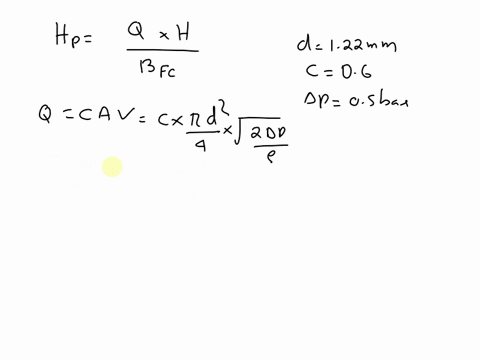 Hp = Q × H / BFC
d = 1.22 mm
C = 0.6
ΔP = 0.5 bar
Q = C A V = C × π d² / 4 × √ 2 ΔP / ρ